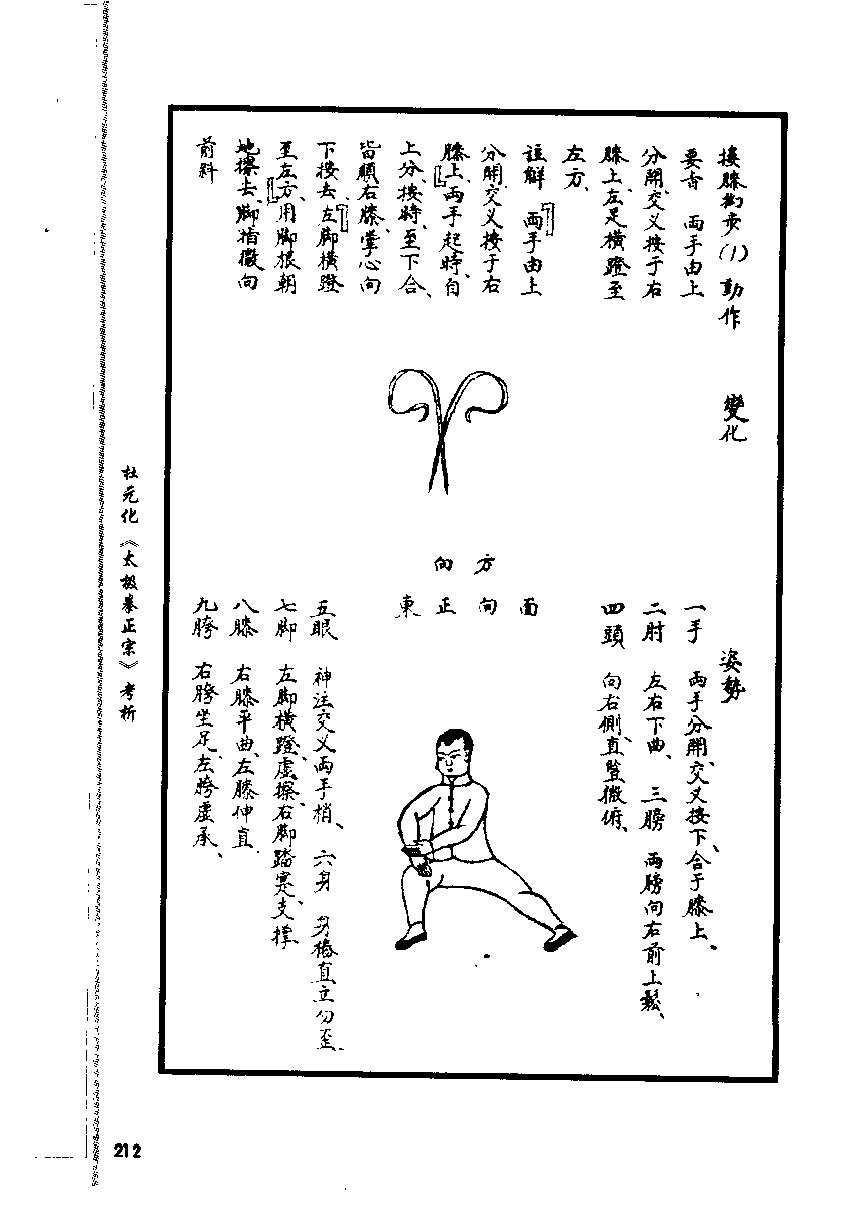 摟膝拗步(1)動作
變化
要言 兩手由上
分開、交叉按于右
膝上、左足橫蹬至
左方、
註解 兩手由上
分開、交叉按于右
膝上、兩手起時、自
上分、按時、至下合、
皆順右膝、掌心向
下按去、左脚橫蹬
至左方、用脚根朝
地擦去、脚指微向
前斜
方向
面向正東
姿勢
一手 兩手分開、交叉按下、合于膝上、
二肘 左右下曲、三膀 兩膀向右前上鬆、
四頭 向右側、直豎微俯、
五眼 神注交叉兩手梢、六身 身樁直立勿歪、
七脚 左脚橫蹬、虛擦、右脚踏實、支撑
八膝 右膝平曲、左膝伸直
九胯 右胯坐足、左胯虛承、
杜元化《太极拳正宗》考析
212